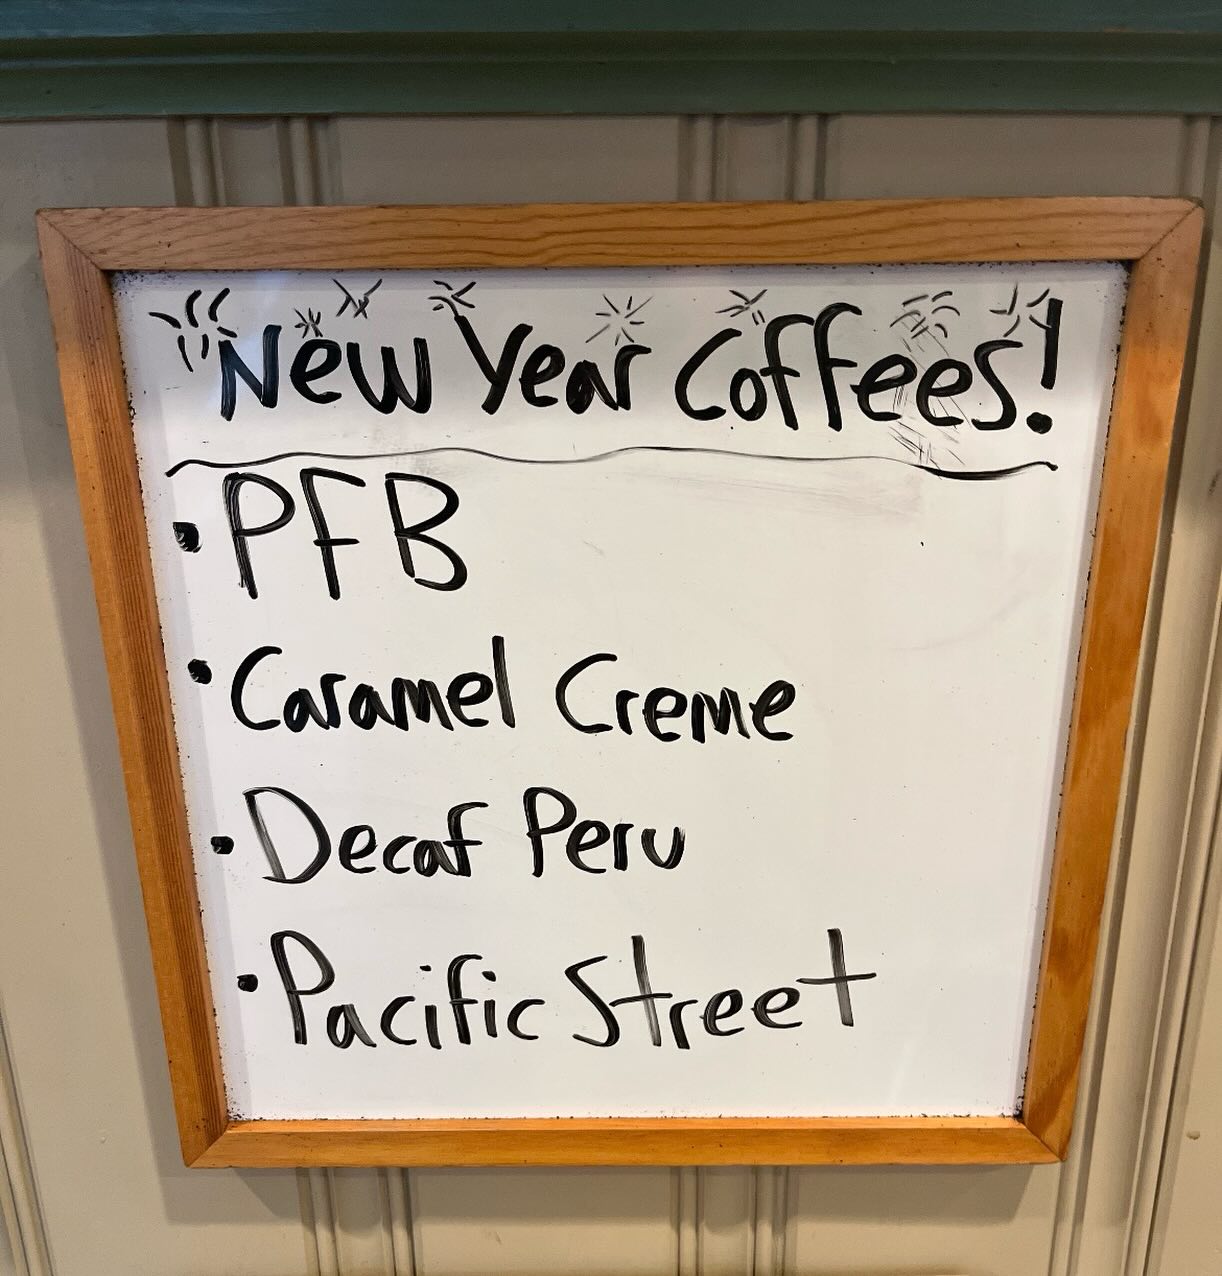 New Year Coffees!
• PFB
• Caramel Creme
• Decaf Peru
• Pacific Street